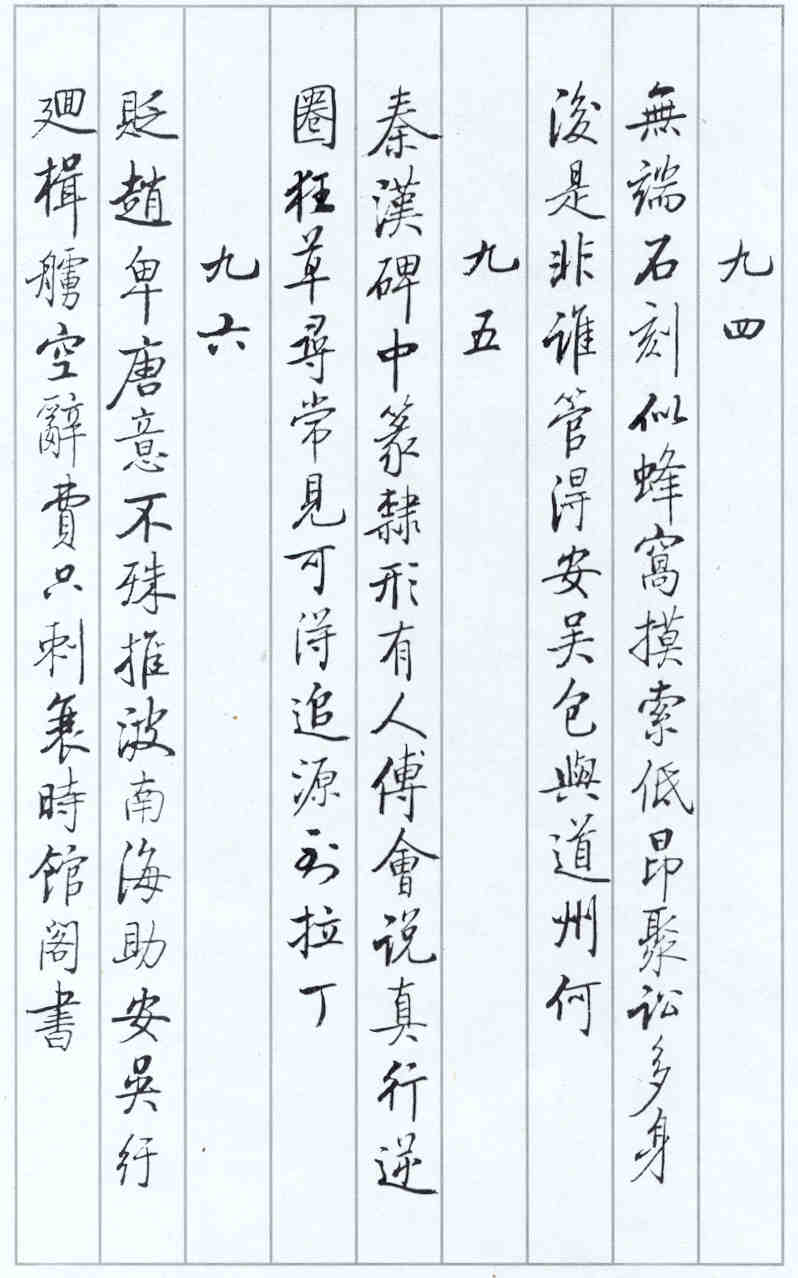 九四
無端石刻似蜂窩摸索低昂聚訟多身
後是非誰管得安吴包與道州何
九五
秦漢碑中篆隸形有人傅會说真行逆
圈狂草尋常見可得追源到拉丁
九六
貶趙卑唐意不殊推波南海助安吴紆
廻楫艣空辭費只刺衰時館閣書